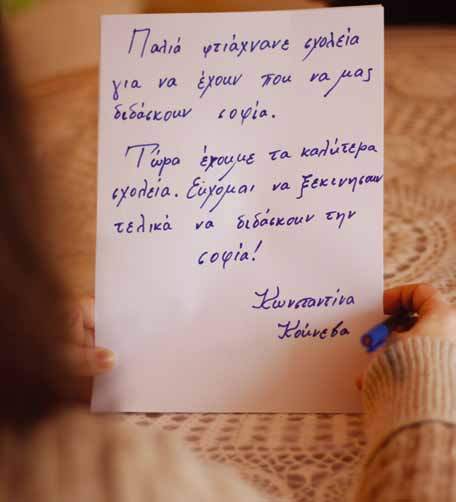 Παλιά φτιάχνανε σχολεία
για να έχουν που να μας
διδάσκουν σοφία.
Τώρα έχουμε τα καλύτερα
σχολεία. Εύχομαι να ξεκινήσουν
τελικά να διδάσκουν την
σοφία!
Κωνσταντίνα
Κούνεβα